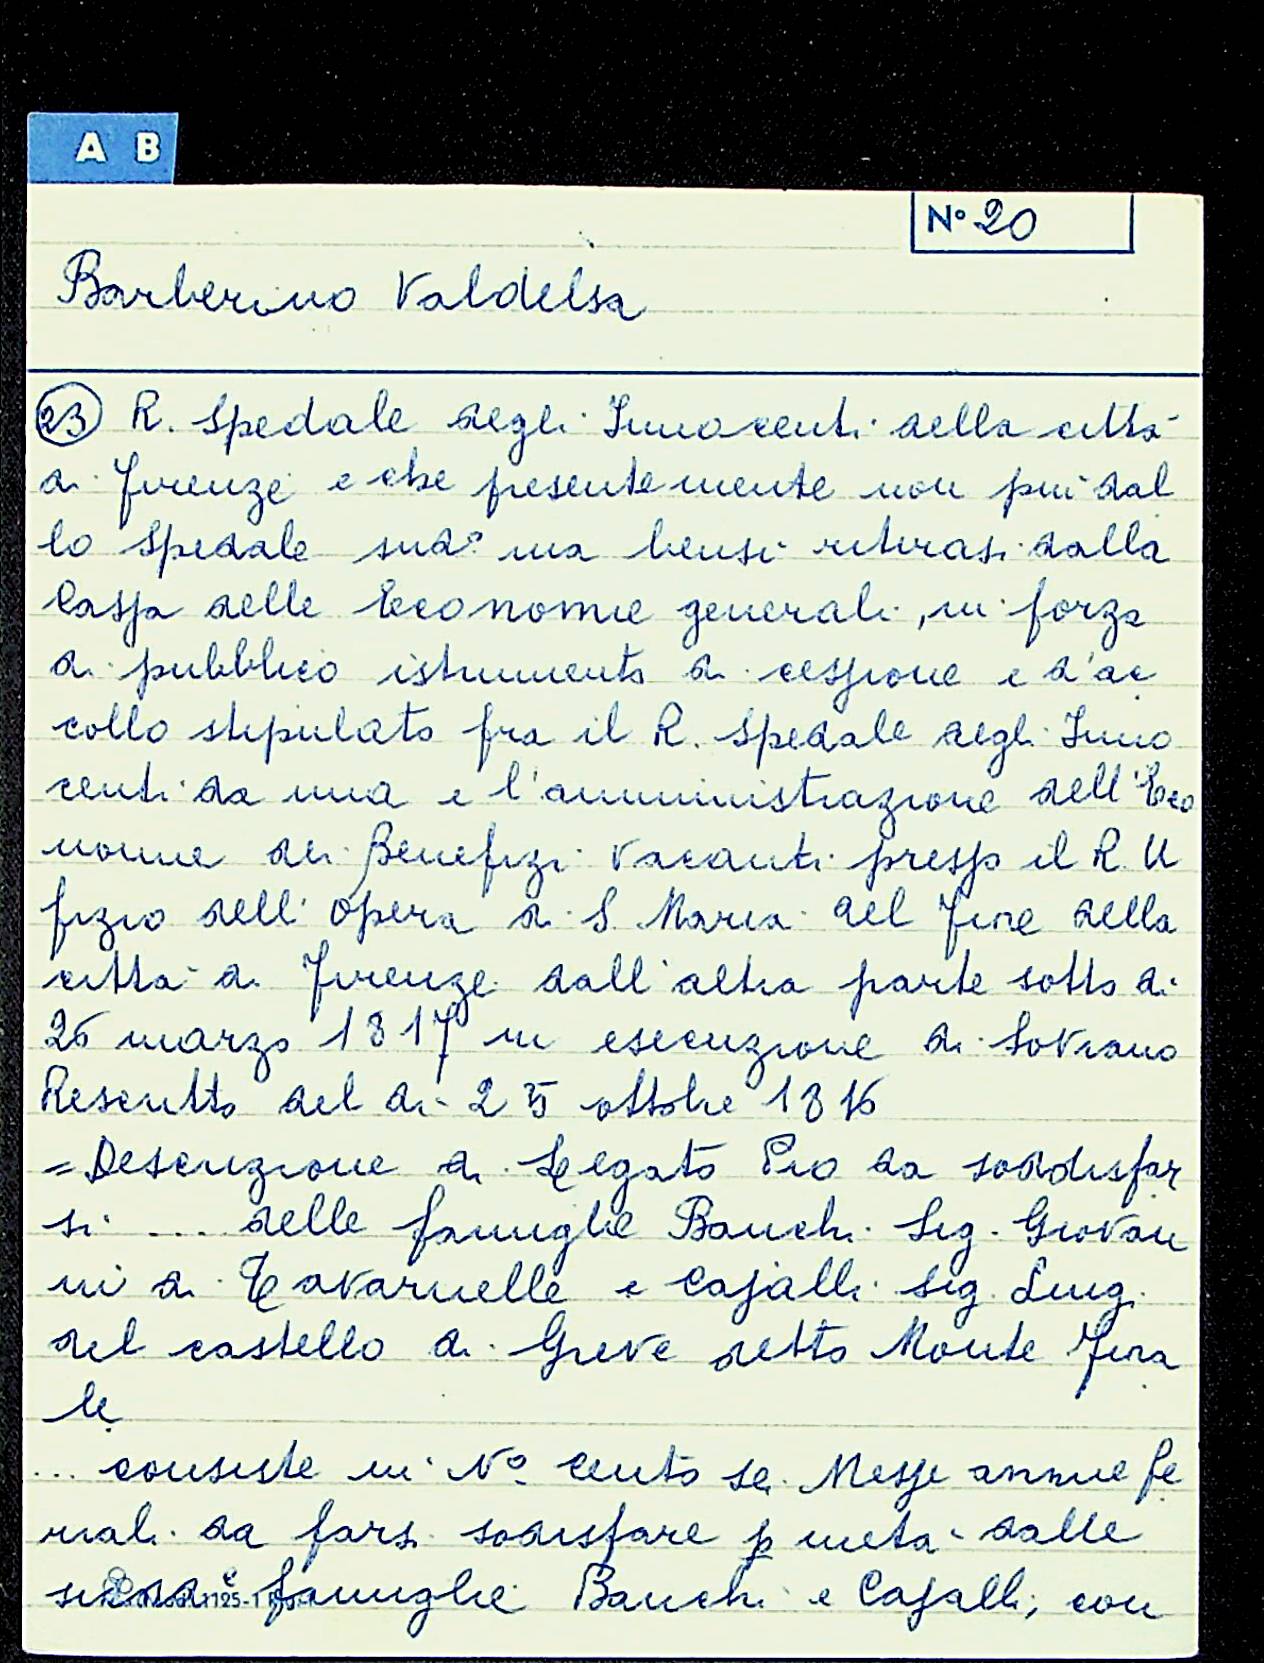 A B
N° 20
Barberino Valdelsa
23 R. Spedale degli Innocenti della città
di Firenze e che presentemente non più dal
lo Spedale sudo ma bensì ritirasi dalla
Cassa delle Economie generali, in forza
di pubblico istrumento di cessione e d'ac
collo stipulato fra il R. Spedale degli Inno
centi da una e l'amministrazione dell'Eco
nomie dei Benefizi Vacanti presso il R. U
fizio dell'Opera di S. Maria del Fiore della
città di Firenze dall'altra parte sotto di
26 marzo 1817 in esecuzione di Sovrano
Rescritto del di 25 ottobre 1816
= Descrizione di Legato Pio da soddisfar
si .... delle famiglie Bauchi Sig. Giovan
ni di Tavarnelle e Casalli sig. Luigi
del castello di Greve detto Monte Fira
le
... consiste in N° cento sei Messe annue fe
riali da farsi sodisfare p metà dalle
famiglie Bauchi e Casalli, con